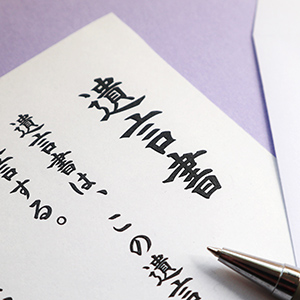 遺言書
遺言書は、この遺言
言する。